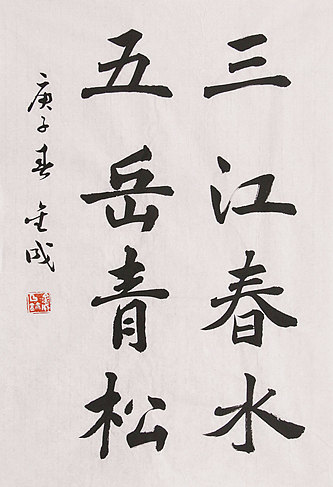 三江春水
五岳青松
庚子春 金成